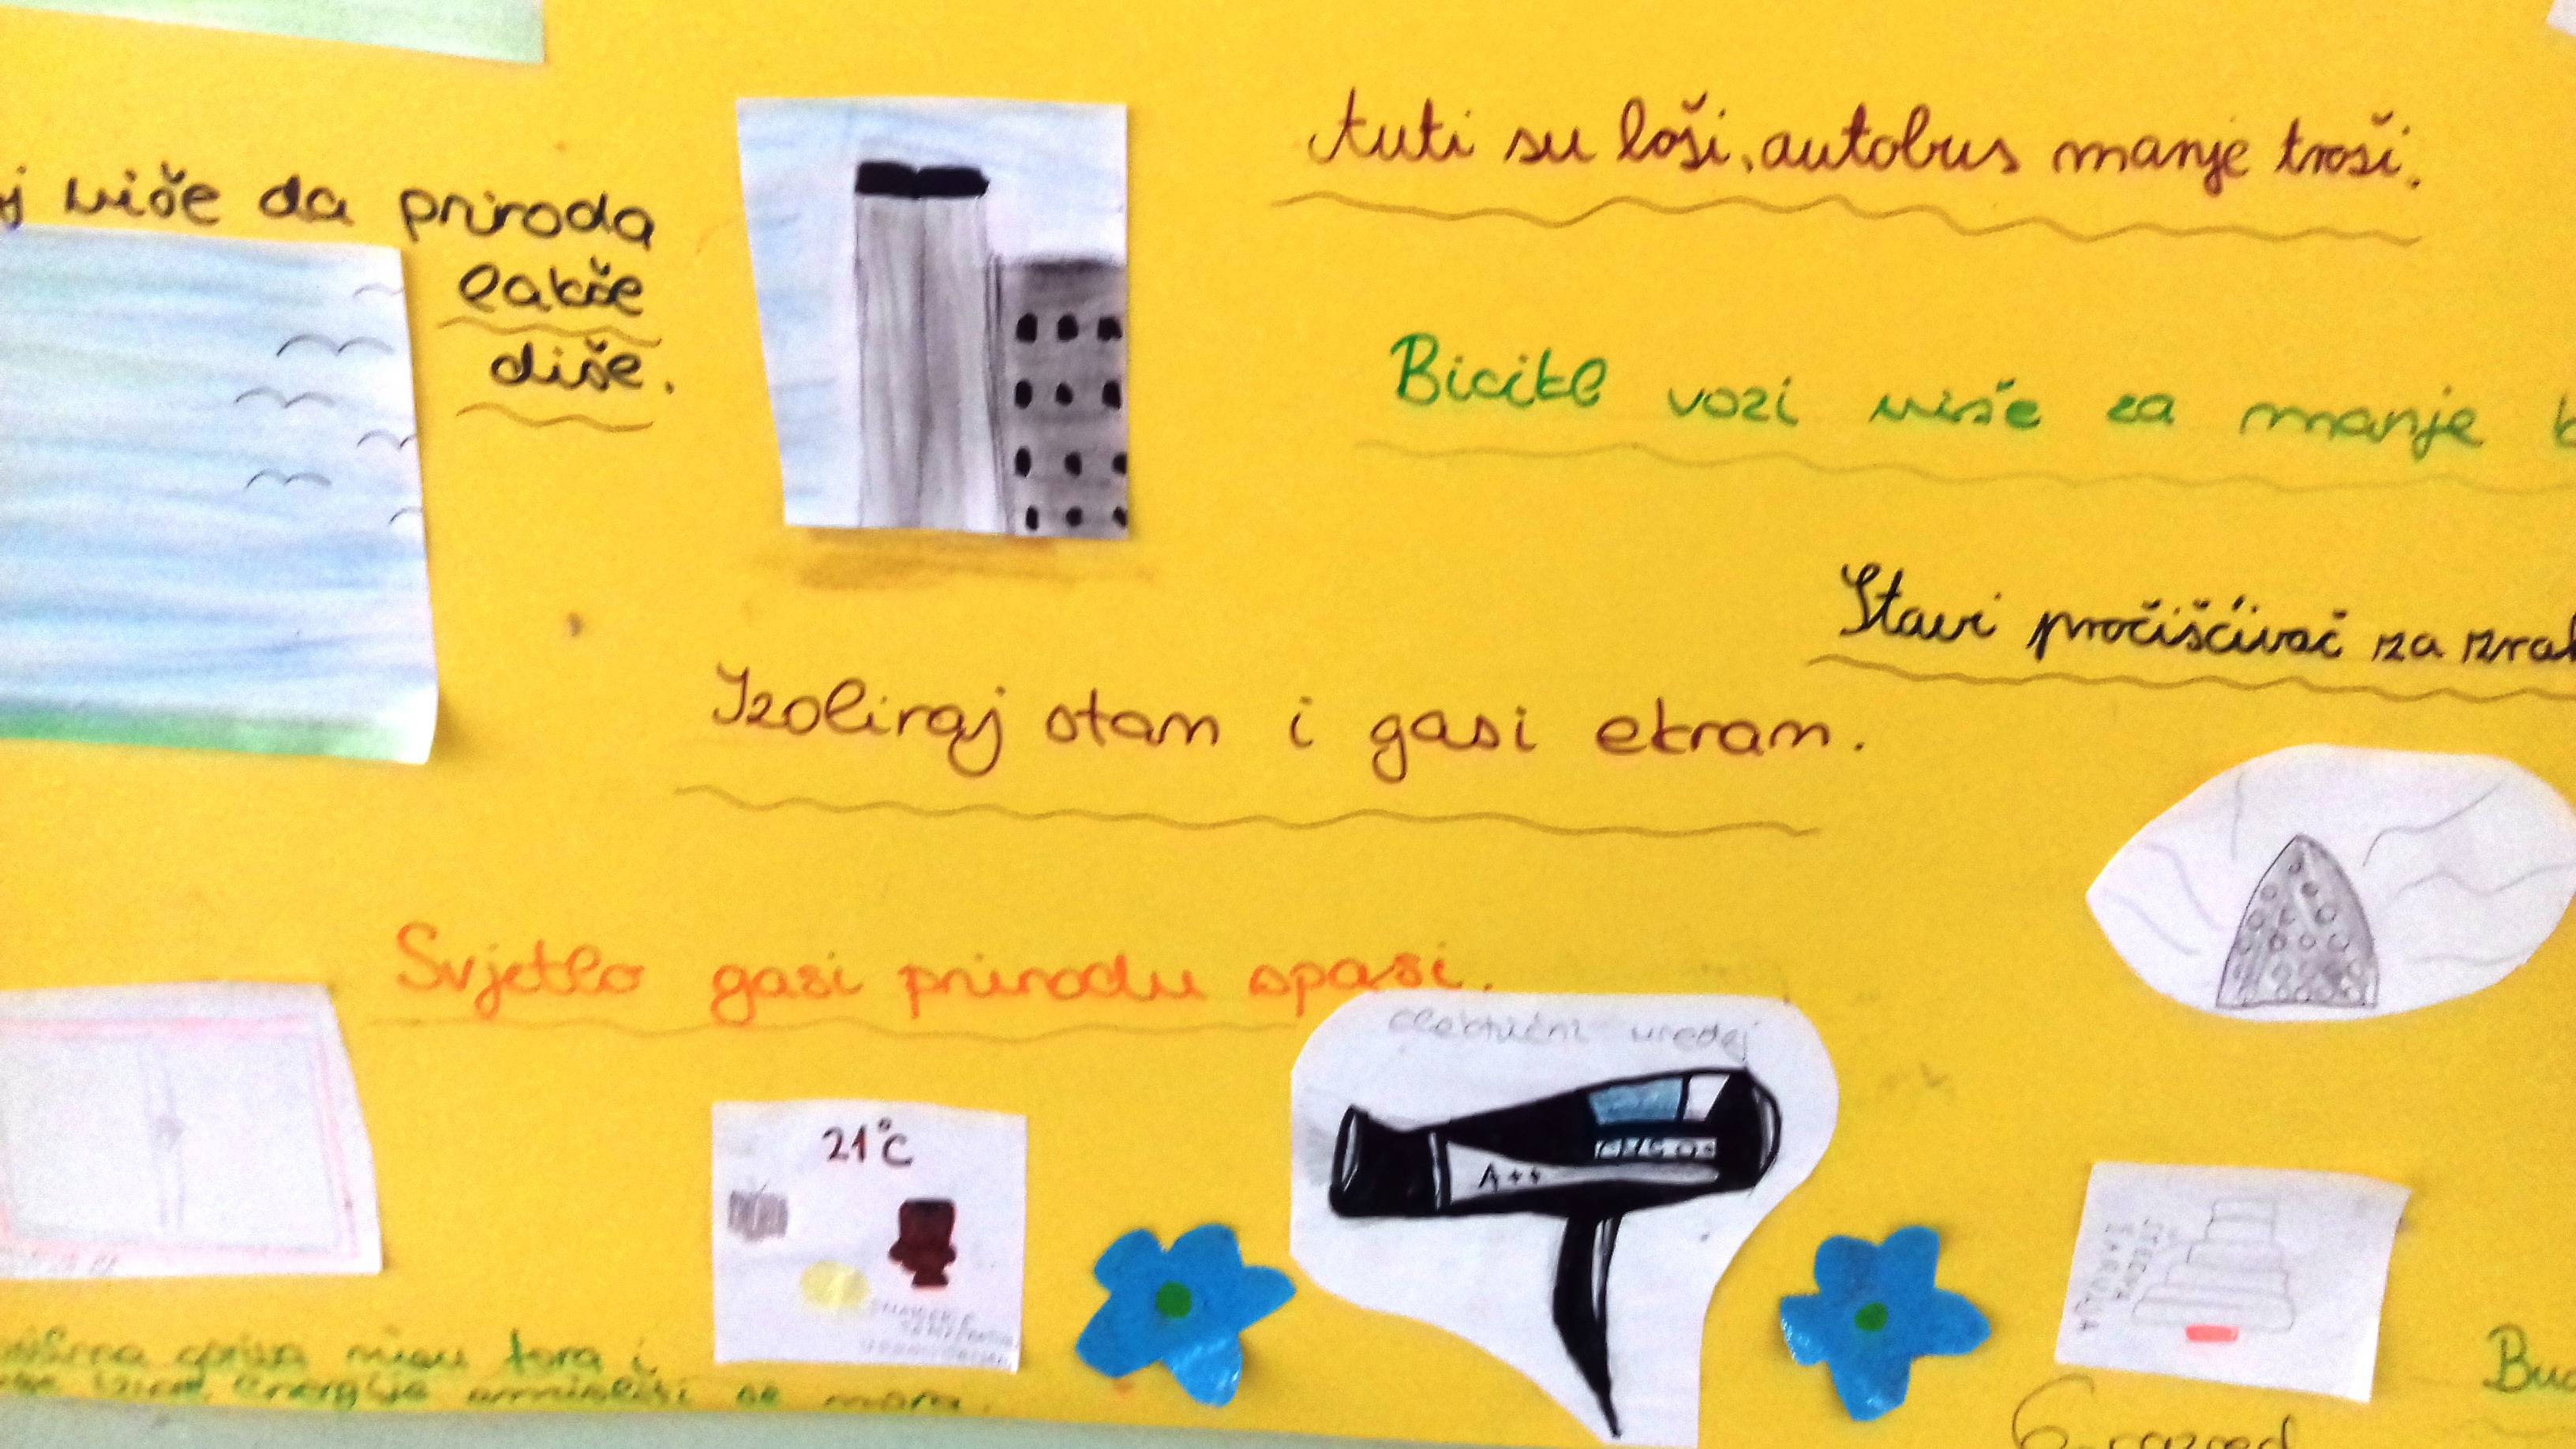 Auti su loši, autobus manje troši.
više da priroda
lakše
diše.
Bicikl vozi više za manje
Stavi pročišćivač za zrak
Izoliraj stan i gasi ekran.
Svjetlo gasi prirodu spasi.
električni uređaj
A++
21°C
ŠTEDNA
ŽARULJA
nisu fora i
energije se mora.
6. razred